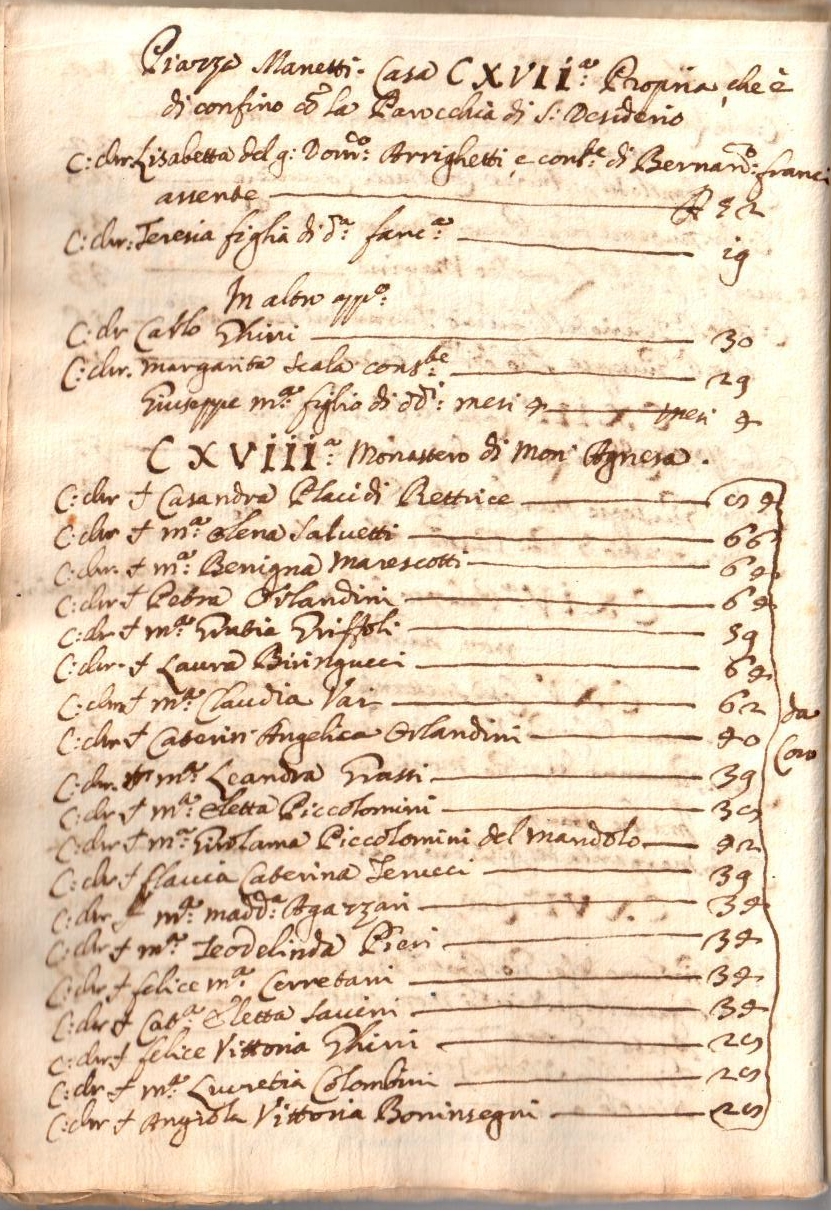 Piazza Manetti. Casa CXVII.ª Propria, che è
di confino cō la Parocchia di S: Desiderio
C: chr. Lisabetta del q: Dom.co Arrighetti, e cons.te di Bernard.o franci
assente 42
C: chr: Teresia figlia di d.ª fanc.ª 19
In altro app.o
C: chr Carlo Ghini 30
C: chr. Margarita Scala cons.te 29
Giuseppe m.ª figlio di dd.i mesi 4 mesi 4
CXVIII.ª Monastero di Mon' Agnesa.
C: chr † Casandra Placidi Rettrice 54
C: chr † m.ª Elena Salvetti 66
C: chr. † m.ª Benigna Marescotti 64
C: chr † Petra Orlandini 64
C: chr † m.ª Gratia Griffoli 59
C: chr. † Laura Biringucci 64
C: chr † m.ª Claudia Vai 62
C: chr † Caterin' Angelica Orlandini 40
da
Coro
C: chr. † m.ª Leandra Grassi 39
C: chr † m.ª Eletta Piccolomini 35
C: chr † m.ª Girolama Piccolomini del Mandolo 42
C: chr † flavia Caterina Terucci 39
C: chr † m.ª Madd.ª Agazzari 34
C: chr † m.ª Teodelinda Pieri 34
C: chr † felice m.ª Cerretani 34
C: chr † Cat.ª Eletta Savini 34
C: chr † felice Vittoria Ghini 25
C: chr † m.ª Lucretia Colombini 25
C: chr † Angiola Vittoria Boninsegni 25